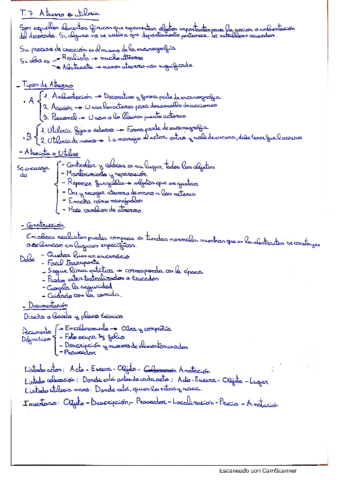 T.7. Atrezzo o Utilería
Son aquellos elementos físicos que representan objetos importantes para la acción o ambientación
del decorado. Si alguno no se sabe a que departamento pertenece, se establecen acuerdos
Su proceso de creación es el mismo de la escenografía
Si obra es → Realista → mucho atrezzo
→ Abstracta → menos atrezzo más significado
- Tipos de Atrezzo
• A 1. Ambientación → Decorativo y forma parte de escenografía
2. Acción → Usan los actores para desarrollar acciones
3. Personal → Usan o lo llevan puesto actores
• B 1. Utilería fija o actores → Forma parte de escenografía
2. Utilería de mano → La maneja el actor, entra y sale de escena, debe tenerla el actor
- Atrezzista o Utilero
Se encarga de
- Controlar y colocar en su lugar todos los objetos
- Mantenimiento y reparación
- Reponer fungibles → objetos que se gastan
- Dar y recoger atrezzo de mano a los actores
- Ensaya como manejarlos
- Hace cambios de atrezzo
- Construcción
En obras realistas puedes comprar en tiendas normales mientras que en las abstractas se construyen
o se buscan en lugares específicos.
Debe
- Quedar bien en escenario
- Facil transporte
- Seguir línea estética → corresponda con la época
- Puedes estar teatralizados o trucados
- Cumpla la seguridad
- Cuidado con la comida.
- Documentación
Diseño a boceto y plano técnico
Documento Definitivo
- Encabezamiento → Obra y compañía
- Foto ocupa ½ folio
- Descripción y número de elementos usados
- Proveedor
Listado actor: Acto - Escena - Objeto - Anotación
Listado colocación: Donde está antes de cada acto: Acto - Escena - Objeto - Lugar
Listado utilería mano: Donde está, quien lo entra y saca.
Inventario: Objeto - Descripción - Proveedor - Localización - Precio - Anotación
Escaneado con CamScanner